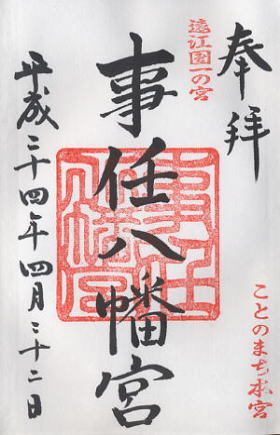 奉拝
遠江国一の宮
事任八幡宮
事任
八幡宮
ことのまち本宮
平成二十四年四月二十二日